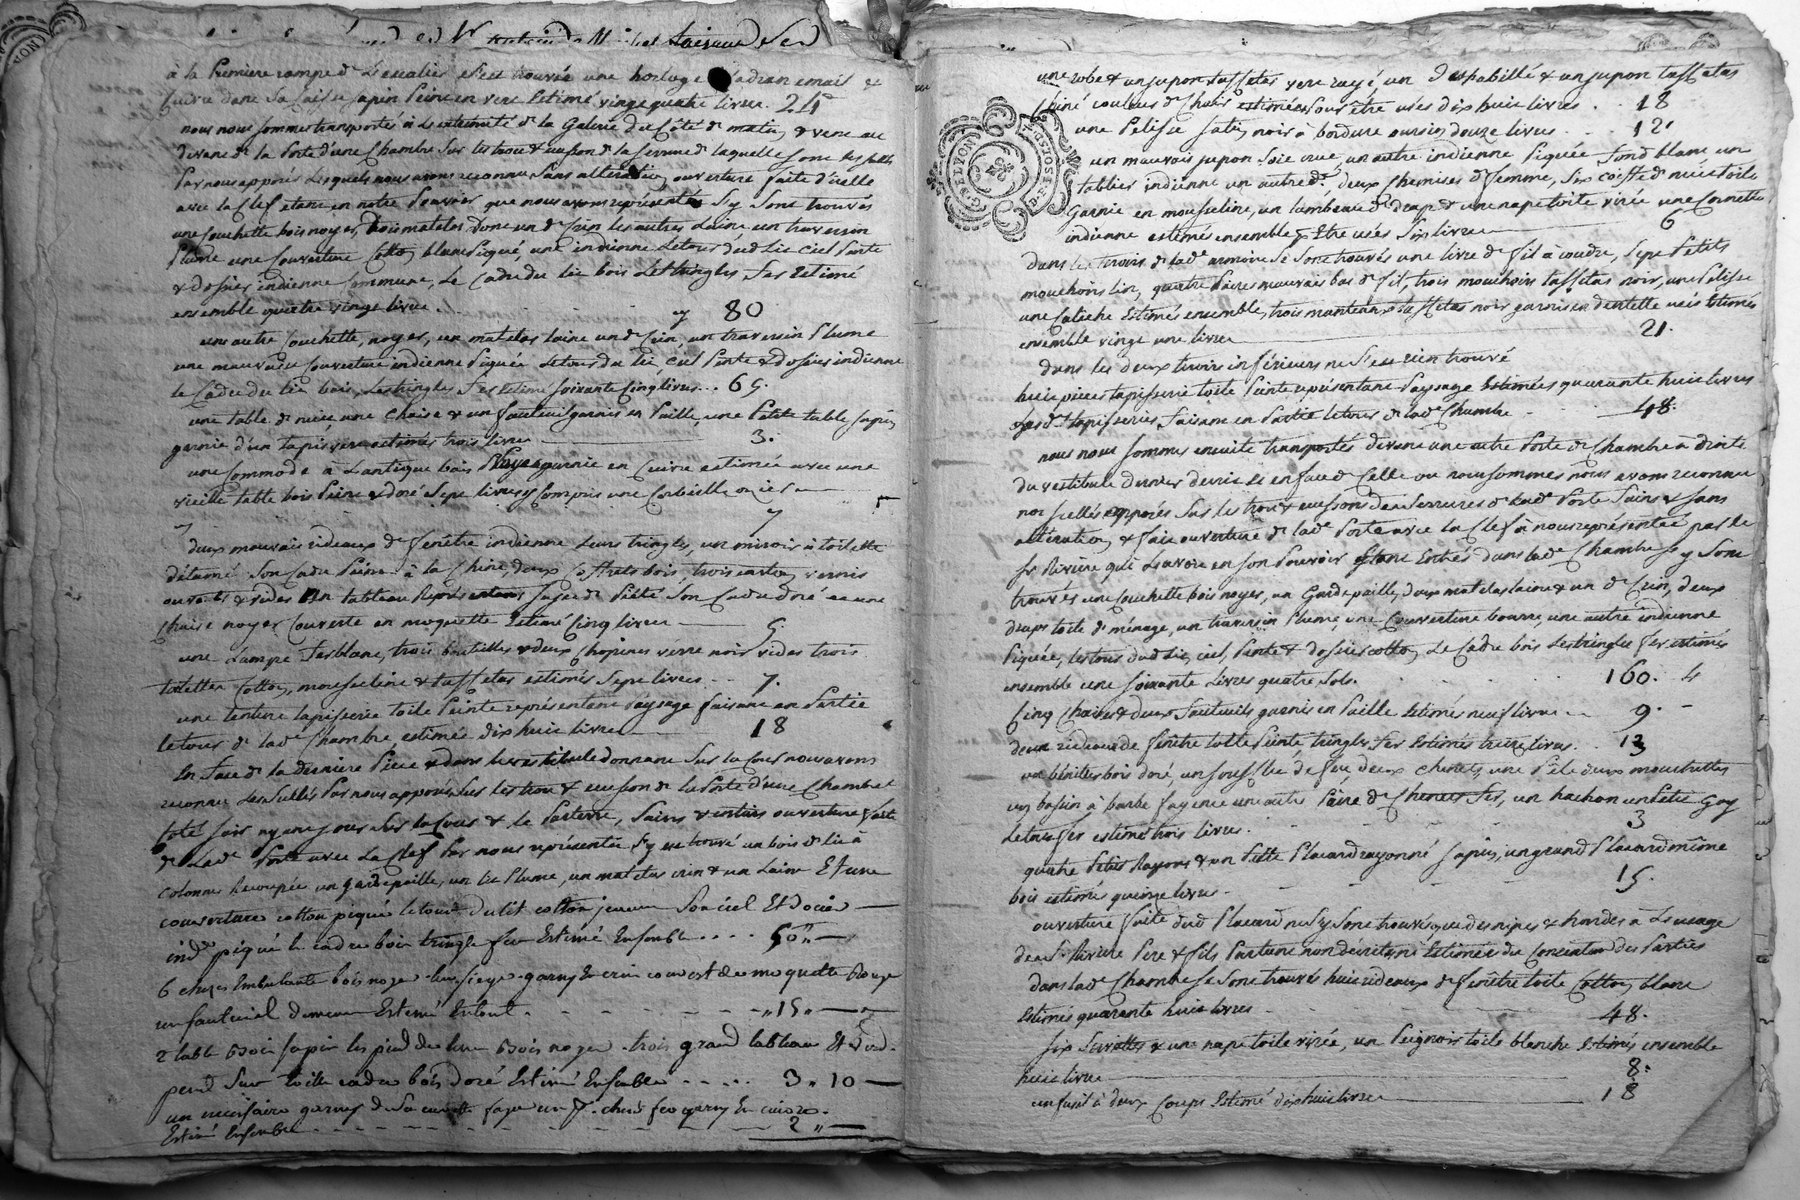 à la Premiere rampe d Lescalier s'est trouvée une horloge Cadran email &
Cuivre dans sa Caisse sapin Peint en vert Estimé vingt quatre livres. 24
nous nous sommes transportés à L'extremité d la Galerie du Côté d matin, & vent au
devant d la Porte d'une Chambre sur les trous & ecusson d la serrure d laquelle sont les scellés
Par nous apposés Lesquels nous avons reconnu sans alteration ouverture faite d'icelle
avec la Clef etant en notre Pouvoir que nous avons représenté S'y sont trouvés
une Couchette bois noyer, trois matelas dont un d Crin les autres Laine un traversin
Plume une Couverture Cotton blanc Piqué, une indienne Le tour dud Lit Ciel Pente
& dossier indienne Commune, Le Cadre du lit bois Les tringles fer Estimé
ensemble quatre vingt livres. 80
une autre Couchette, noyer, un matelas laine un d Crin, un traversin Plume
une mauvaise Couverture indienne Piquée Le tour du lit Ciel Pente & dossier indienne
le Cadre du lit bois, Les tringles fer Estimé soixante Cinq livres. . 65.
une table d nuit, une Chaise & un fauteuil garnis en Paille, une Petite table sapin
garnie d'un tapis vert estimés trois livres 3.
une Commode à L'antique bois Noyer garnie en Cuivre estimée avec une
vieille table bois Peint & doré Sept livres y Compris une Corbeille ozier
7
deux mauvais rideaux d fenêtre indienne Leurs tringles, un miroir à toilette
détamé Son Cadre Peint à la Chine, deux Coffrets bois, trois carton vernis
ouvrés & vides Un tableau Représentant Sujet d Piété Son Cadre doré & une
Chaise noyer Couverte en moquette Estimé Cinq livres 5.
une Lampe fer blanc, trois bouteilles & deux Chopines verre noir vides trois
toilettes Cotton, mousseline & taffetas estimés Sept livres 7.
une tenture tapisserie toile Peinte représentant Païsage faisant en Partie
le tour d lad Chambre, estimée dix huit livres 18
En face d la derniere Piece & dans le vestibule donnant Sur la Cour nous avons
reconnu Les scellés Par nous apposés Sur les trous & ecusson d la Porte d'une Chambre
coté soir ayant jour sur la Cour & le Parterre, Sains & entiers ouverture faite
d lade Porte avec La Clef Par nous représentée S'y est trouvé un bois d lit à
Colonnes Recoupée un gardepaille, un lit Plume, un matelas crin & un Laine Et une
couverture cotton piqué le tour du lit cotton jeaune Son ciel Et Docier
indne piqué le cadre bois tringle fer Estimé Ensemble . . . . 50 "
6 chezes Embulante bois noyer leur siege garny En crin couvert de moquette Rouge
un fauteuil de meme Estimé En tout " 15 "
2 table bois sapin les pied de leur bois noyer trois grand tableau Et
pend Sur toille cadre bois doré Estimé Ensemble . . . . . 3 " 10
un necessaire garny de Sa cuvette chenet feo garny En cuivre.
Estimé Ensemble 2 "
une robe & un jupon taffetas vert rayé un Deshabillé & un jupon taffetas
Chiné couleur d Chair estimés pour être usés dix huit livres . . 18
une Pelisse Satin noir à bordure oursin douze livres 12.
un mauvais jupon Soie cruë, un autre indienne Piquée fond blanc un
tablier indienne un autre d. deux Chemises d femme, Six coeffe d nuit toile
Garnie en mousseline, un lambeau d drap & une nape toile virée une Cornette
indienne estimés ensemble & Etre usés Six livres 6
dans les tiroirs d lade armoire se sont trouvés une livre d fil à coudre, Sept Petits
mouchoirs lin, quatre Paires mauvais bas d fil, trois mouchoirs taffetas noir, une Pelisse
une Caleche Estimés ensemble, trois manteaux d taffetas noir garnis en dentelle noir Estimés
ensemble vingt une livres 21.
dans les deux tiroirs inférieurs ne S'est rien trouvé
huit pieces tapisserie toile Peinte représentant Paysage Estimées quarante huit livres
lesd tapisseries faisant en Partie le tour d lade Chambre 48.
nous nous sommes ensuite transportés devant une autre Porte d Chambre à droite
du vestibule en face d Celle ou nous sommes nous avons reconnu
nos scellés apposés Sur les trous & ecussons des Serrures d lade Porte Sains & sans
alteration & fait ouverture d lade Porte avec la Clef à nous représentée par le
Sr Riviere qui L'avoit en son Pouvoir Etant Entrés dans lade Chambre S y Sont
trouvés une Couchette bois noyer, un Garde paille, deux matelas laine & un d Crin, deux
draps toile d ménage, un traversin Plume, une Couverture bourre une autre indienne
Piquée, les tours dud Lit, ciel, Pente & dossier cotton Le Cadre bois Les tringles fer estimés
ensemble cent soixante Livres quatre Sols. 160. 4
Cinq Chaises & deux fauteuils garnis en Paille Estimés neuf livres 9.
deux rideaux de fenêtre toile Peinte tringles fer Estimés treize livres. 13
un bénitier bois doré un soufflet de feu deux Chenets, une Pêle deux mouchettes
un bassin à barbe fayence une autre Paire d Chenets fer, un hachon un Petit Goy
Le tout fer estimés trois livres. 3
quatre Petits Rayons & un Petit Placard rayonné sapin, un grand Placard même
bois estimés quinze livres 15.
ouverture faite dud Placard ne S'y sont trouvés que des nipes & hardes à L'usage
des Srs Riviere Pere & fils Partant non décrites ni Estimées du Consentement des Parties
dans lade Chambre se Sont trouvés huit rideaux d fenêtre toile Cotton blanc
Estimés quarante huit livres 48.
Six Serviettes & une nape toile virée, un Peignoir toile blanche estimés ensemble
huit livres 8.
un fusil à deux Coups Estimé dix huit livres 18
G. DE LYON